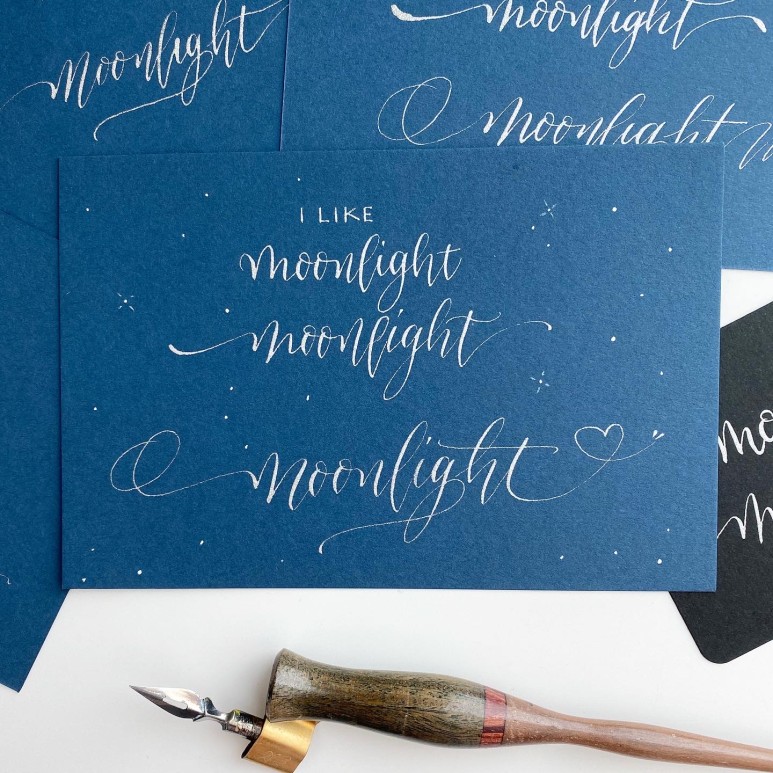 moonlight
moonlight
moonlight
I LIKE
moonlight
moonlight
moonlight